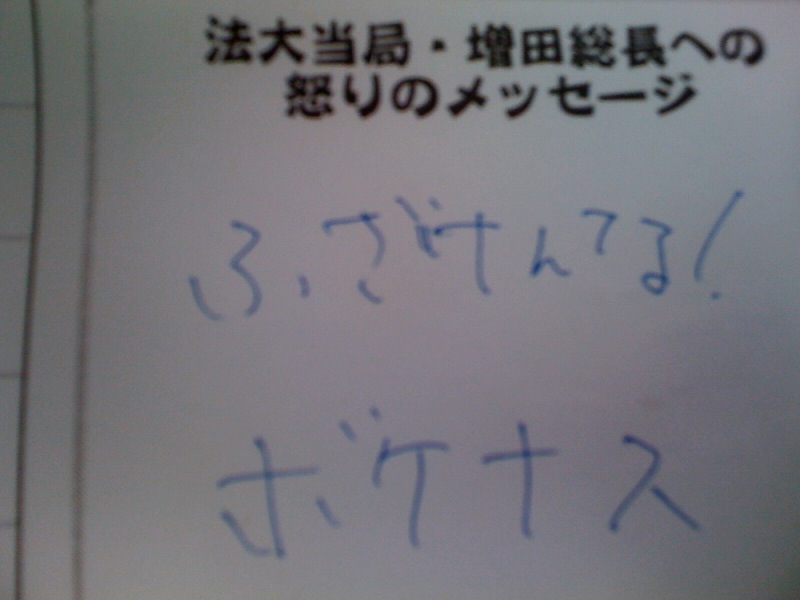 法大当局・増田総長への
怒りのメッセージ
ふざけんてる!
ボケナス